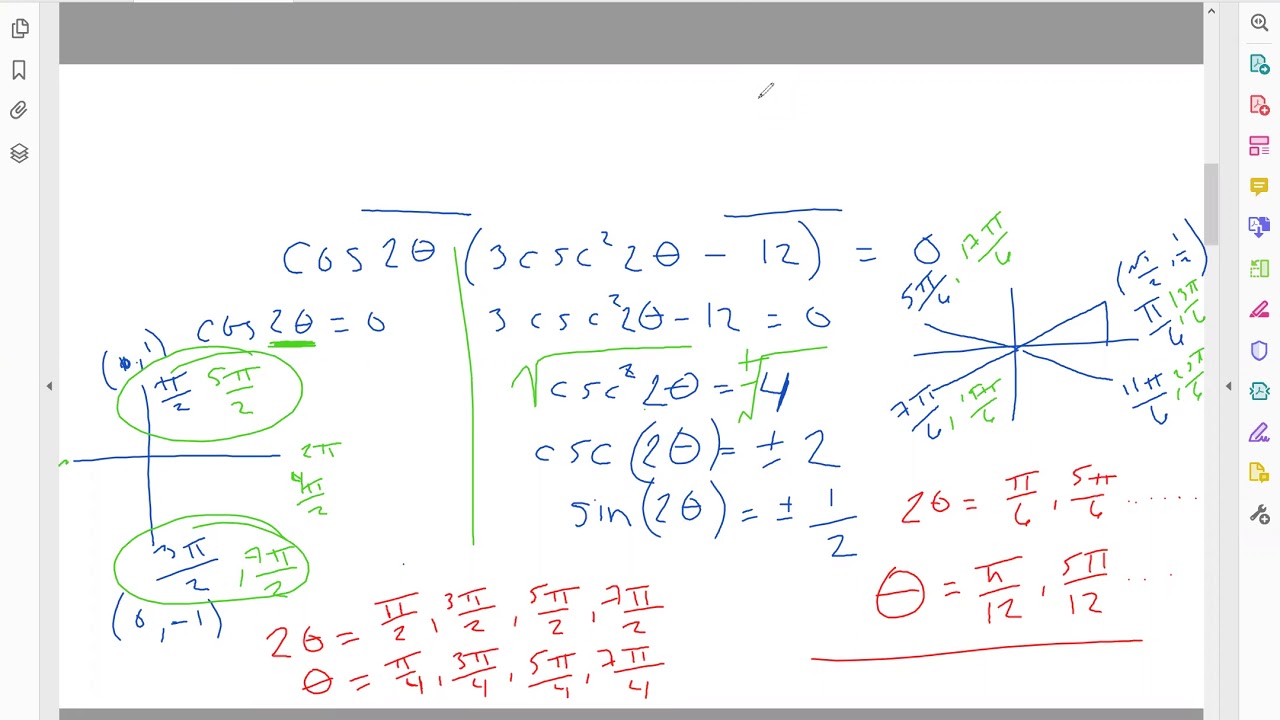 cos 2θ (3csc² 2θ − 12) = 0
cos 2θ = 0
(0, 1)
π/2 5π/2
2π
4π/2
3π/2, 7π/2
(0, −1)
2θ = π/2, 3π/2, 5π/2, 7π/2
θ = π/4, 3π/4, 5π/4, 7π/4
3 csc² 2θ − 12 = 0
√csc² 2θ = ±√4
csc(2θ) = ± 2
sin(2θ) = ± 1/2
5π/6, 17π/6
(√3/2, 1/2)
π/6, 13π/6
7π/6,
11π/6, 23π/6
2θ = π/6, 5π/6 ......
θ = π/12, 5π/12 ....